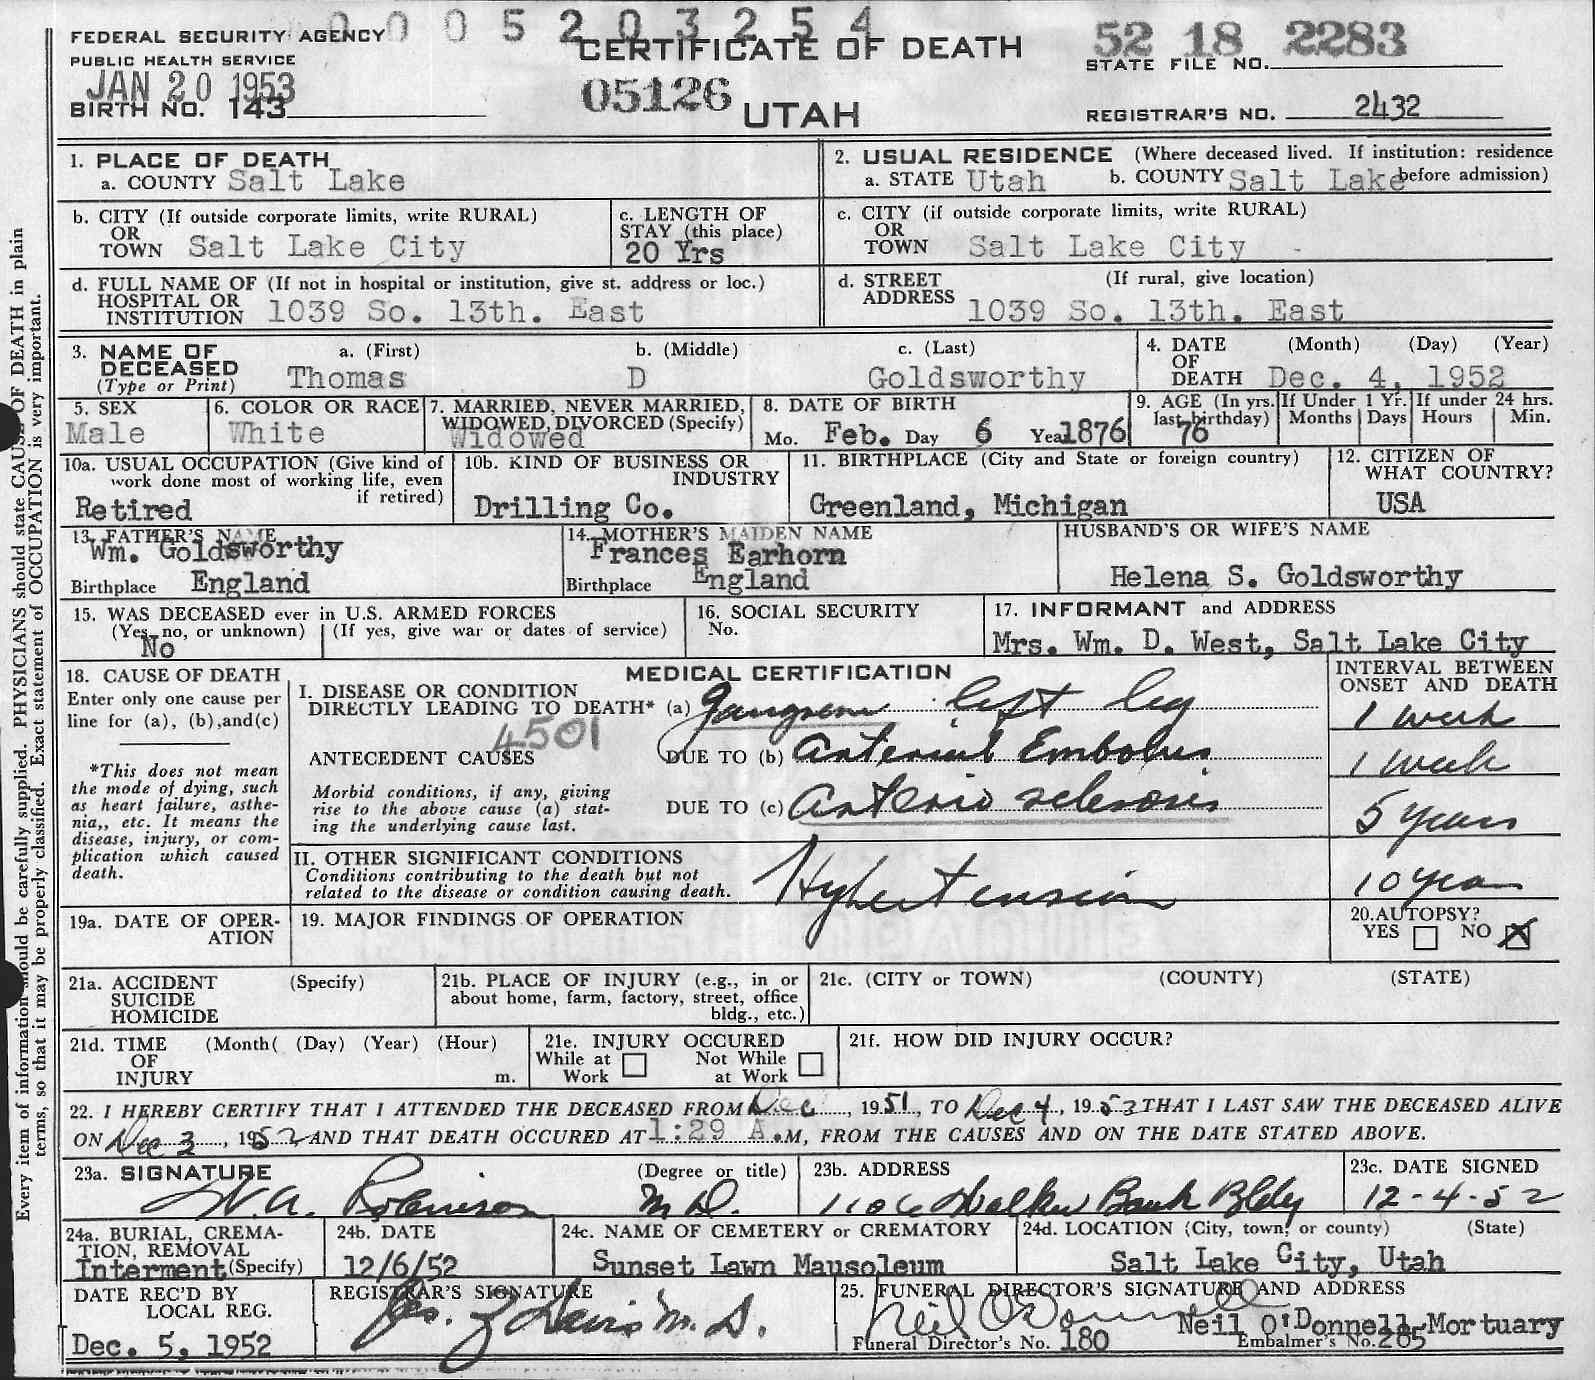 0005203254
FEDERAL SECURITY AGENCY
PUBLIC HEALTH SERVICE
JAN 20 1953
BIRTH NO. 143
CERTIFICATE OF DEATH
05126 UTAH
52 18 2283
STATE FILE NO.
REGISTRAR'S NO. 2432
1. PLACE OF DEATH
a. COUNTY Salt Lake
2. USUAL RESIDENCE (Where deceased lived. If institution: residence before admission)
a. STATE Utah b. COUNTY Salt Lake
b. CITY (If outside corporate limits, write RURAL)
OR
TOWN Salt Lake City
c. LENGTH OF
STAY (this place)
20 Yrs
c. CITY (if outside corporate limits, write RURAL)
OR
TOWN Salt Lake City
d. FULL NAME OF (If not in hospital or institution, give st. address or loc.)
HOSPITAL OR
INSTITUTION 1039 So. 13th. East
d. STREET (If rural, give location)
ADDRESS 1039 So. 13th. East
3. NAME OF DECEASED
(Type or Print)
a. (First) b. (Middle) c. (Last)
Thomas D Goldsworthy
4. DATE OF DEATH (Month) (Day) (Year)
Dec. 4, 1952
5. SEX
Male
6. COLOR OR RACE
White
7. MARRIED, NEVER MARRIED,
WIDOWED, DIVORCED (Specify)
Widowed
8. DATE OF BIRTH
Mo. Feb. Day 6 Year 1876
9. AGE (In yrs. last birthday)
76
If Under 1 Yr.
Months Days
If under 24 hrs.
Hours Min.
10a. USUAL OCCUPATION (Give kind of
work done most of working life, even
if retired)
Retired
10b. KIND OF BUSINESS OR
INDUSTRY
Drilling Co.
11. BIRTHPLACE (City and State or foreign country)
Greenland, Michigan
12. CITIZEN OF
WHAT COUNTRY?
USA
13. FATHER'S NAME
Wm. Goldsworthy
Birthplace England
14. MOTHER'S MAIDEN NAME
Frances Earhorn
Birthplace England
HUSBAND'S OR WIFE'S NAME
Helena S. Goldsworthy
15. WAS DECEASED ever in U.S. ARMED FORCES
(Yes, no, or unknown) (If yes, give war or dates of service)
No
16. SOCIAL SECURITY
No.
17. INFORMANT and ADDRESS
Mrs. Wm. D. West, Salt Lake City
18. CAUSE OF DEATH
Enter only one cause per
line for (a), (b), and (c)
*This does not mean
the mode of dying, such
as heart failure, asthe-
nia,, etc. It means the
disease, injury, or com-
plication which caused
death.
MEDICAL CERTIFICATION
INTERVAL BETWEEN
ONSET AND DEATH
I. DISEASE OR CONDITION
DIRECTLY LEADING TO DEATH* (a) Gangrene left leg
1 week
4501
ANTECEDENT CAUSES DUE TO (b) Arterial Embolus
1 week
Morbid conditions, if any, giving
rise to the above cause (a) stat-
ing the underlying cause last.
DUE TO (c) Arterio sclerosis
5 years
II. OTHER SIGNIFICANT CONDITIONS
Conditions contributing to the death but not
related to the disease or condition causing death.
Hypertension
10 year
19a. DATE OF OPER-
ATION
19. MAJOR FINDINGS OF OPERATION
20. AUTOPSY?
YES NO X
21a. ACCIDENT (Specify)
SUICIDE
HOMICIDE
21b. PLACE OF INJURY (e.g., in or
about home, farm, factory, street, office
bldg., etc.)
21c. (CITY or TOWN) (COUNTY) (STATE)
21d. TIME (Month( (Day) (Year) (Hour)
OF
INJURY m.
21e. INJURY OCCURED
While at Work Not While at Work
21f. HOW DID INJURY OCCUR?
22. I HEREBY CERTIFY THAT I ATTENDED THE DECEASED FROM Dec, 1951, TO Dec 4, 1952 THAT I LAST SAW THE DECEASED ALIVE
ON Dec 3, 1952 AND THAT DEATH OCCURED AT 1:29 A.M, FROM THE CAUSES AND ON THE DATE STATED ABOVE.
23a. SIGNATURE (Degree or title)
W.A. Robinson M.D.
23b. ADDRESS
1106 Walker Bank Bldg
23c. DATE SIGNED
12-4-52
24a. BURIAL, CREMA-
TION, REMOVAL
Interment (Specify)
24b. DATE
12/6/52
24c. NAME OF CEMETERY or CREMATORY
Sunset Lawn Mausoleum
24d. LOCATION (City, town, or county) (State)
Salt Lake City, Utah
DATE REC'D BY
LOCAL REG.
Dec. 5, 1952
REGISTRAR'S SIGNATURE
Davis M.D.
25. FUNERAL DIRECTOR'S SIGNATURE AND ADDRESS
Neil O'Donnell
Neil O'Donnell Mortuary
Funeral Director's No. 180 Embalmer's No. 285
Every item of information should be carefully supplied. PHYSICIANS should state CAUSE OF DEATH in plain
terms, so that it may be properly classified. Exact statement of OCCUPATION is very important.